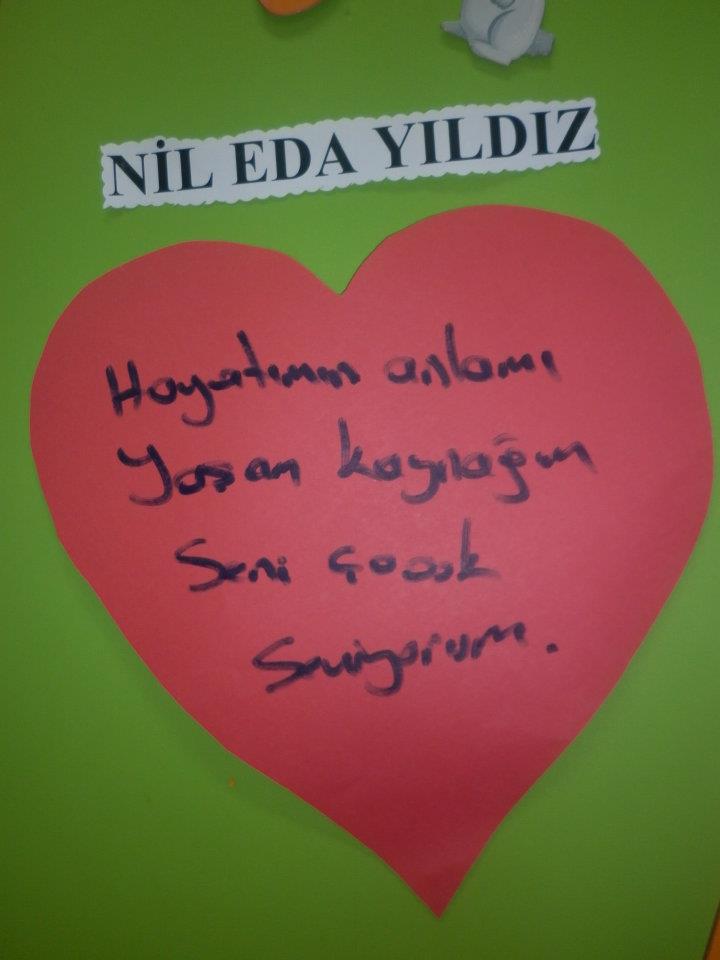 NİL EDA YILDIZ
Hayatımın anlamı
Yaşam kaynağım
Seni çoook
Seviyorum.